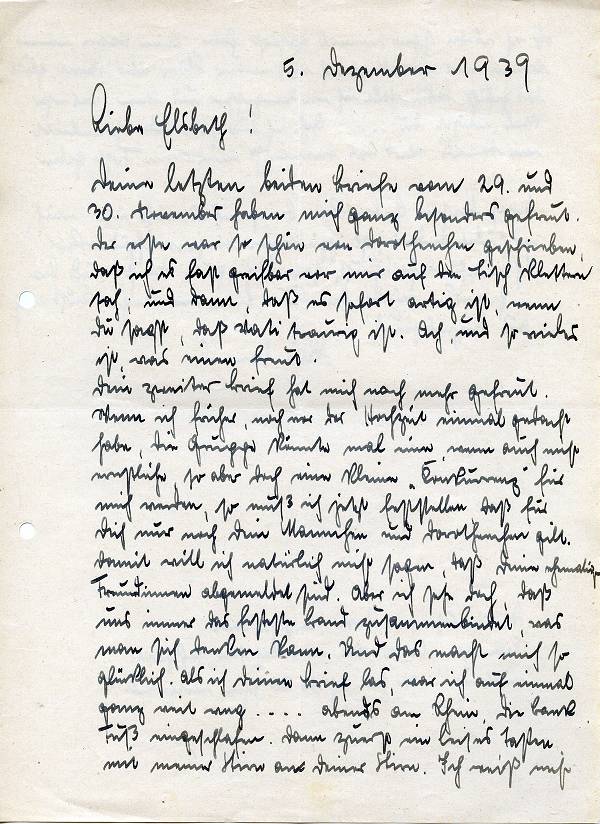 5. Dezember 1939
Liebe Elsbeth!
Deine letzten beiden Briefe vom 29. und
30. November haben mich ganz besonders gefreut.
Der erste war so schön von Dorothenchen geschrieben,
daß ich es fast greifbar vor mir auf den Tisch klettern
sah; und dann, daß es sofort artig ist, wenn
Du sagst, daß Vati traurig ist. Ach, und so vieles
ist, was einen freut.
Dein zweiter Brief hat mich noch mehr gefreut.
Wenn ich früher, noch vor der Hochzeit einmal gedacht
habe, die Gruppe könnte mal eine, wenn auch nicht
ernstliche, so aber doch eine kleine „Konkurrenz" für
mich werden, so muß ich jetzt feststellen daß für
Dich nur noch Dein Mannchen und Dorothenchen gilt.
Damit will ich natürlich nicht sagen, daß Deine ehemaligen
Freundinnen abgemeldet sind. Aber ich sehe doch, daß
uns immer das festeste Band zusammenbindet, was
man sich denken kann. Und das macht mich so
glücklich. Als ich Deinen Brief las, war ich auf einmal
ganz weit weg . . . . abends am Rhein, die Bank
Fuß eingeschlafen. Dann zuerst ein leises Tasten
mit meiner Stirn an Deiner Stirn. Ich weiß nicht